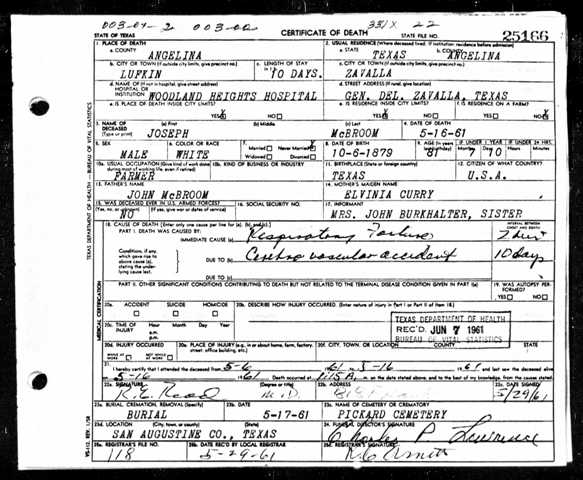 003-04-2 003-00 331X 22
STATE OF TEXAS CERTIFICATE OF DEATH STATE FILE NO. 25166
1. PLACE OF DEATH 2. USUAL RESIDENCE (Where deceased lived. If institution: residence before admission)
a. COUNTY ANGELINA a. STATE TEXAS b. COUNTY ANGELINA
b. CITY OR TOWN (If outside city limits, give precinct no.) c. LENGTH OF STAY c. CITY OR TOWN (If outside city limits, give precinct no.)
LUFKIN 10 DAYS. ZAVALLA
d. NAME OF (If not in hospital, give street address) d. STREET ADDRESS (If rural, give location)
HOSPITAL OR INSTITUTION WOODLAND HEIGHTS HOSPITAL GEN. DEL. ZAVALLA, TEXAS
e. IS PLACE OF DEATH INSIDE CITY LIMITS? e. IS RESIDENCE INSIDE CITY LIMITS? f. IS RESIDENCE ON A FARM?
YES NO YES NO YES NO
3. NAME OF DECEASED (Type or print) (a) First (b) Middle (c) Last 4. DATE OF DEATH
JOSEPH McBROOM 5-16-61
5. SEX 6. COLOR OR RACE 7. Married Never Married 8. DATE OF BIRTH 9. AGE IF UNDER 1 YEAR IF UNDER 24 HRS.
MALE WHITE Widowed Divorced 10-6-1879 81 7 10
10a. USUAL OCCUPATION (Give kind of work done during most of working life, even if retired) 10b. KIND OF BUSINESS OR INDUSTRY 11. BIRTHPLACE (State or foreign country) 12. CITIZEN OF WHAT COUNTRY?
FARMER TEXAS U.S.A.
13. FATHER'S NAME 14. MOTHER'S MAIDEN NAME
JOHN McBROOM ELVINIA CURRY
15. WAS DECEASED EVER IN U.S. ARMED FORCES? 16. SOCIAL SECURITY NO. 17. INFORMANT
(Yes, no, or unknown) (If yes, give war or dates of service)
NO MRS. JOHN BURKHALTER, SISTER
18. CAUSE OF DEATH [Enter only one cause per line for (a), (b), and (c).] INTERVAL BETWEEN ONSET AND DEATH
PART I. DEATH WAS CAUSED BY:
IMMEDIATE CAUSE (a) Respiratory Failure
Conditions, if any, which gave rise to above cause (a), stating the underlying cause last. DUE TO (b) Cerebro vascular accident 10 days
DUE TO (c)
PART II. OTHER SIGNIFICANT CONDITIONS CONTRIBUTING TO DEATH BUT NOT RELATED TO THE TERMINAL DISEASE CONDITION GIVEN IN PART I(a) 19. WAS AUTOPSY PERFORMED?
YES NO
20a. ACCIDENT SUICIDE HOMICIDE 20b. DESCRIBE HOW INJURY OCCURRED. (Enter nature of injury in Part I or Part II of item 18.)
20c. TIME OF INJURY Hour Month Day Year
a.m.
p.m.
TEXAS DEPARTMENT OF HEALTH
REC'D JUN 7 1961
BUREAU OF VITAL STATISTICS
20d. INJURY OCCURRED 20e. PLACE OF INJURY (e.g. in or about home, farm, factory, street, office building, etc.) 20f. CITY, TOWN, OR LOCATION COUNTY STATE
WHILE AT WORK NOT WHILE AT WORK
21. I hereby certify that I attended the deceased from 5-6 61 5-16 1961 and last saw the deceased alive
5-16 1961 Death occurred at 1:15A m. on the date stated above, and to the best of my knowledge, from the causes stated.
22a. SIGNATURE 22b. ADDRESS 22c. DATE SIGNED
M.D. 5/29/61
23a. BURIAL, CREMATION, REMOVAL (Specify) 23b. DATE 23c. NAME OF CEMETERY OR CREMATORY
BURIAL 5-17-61 PICKARD CEMETERY
23d. LOCATION (City, town, or county) (State) 24. FUNERAL DIRECTOR'S SIGNATURE
SAN AUGUSTINE CO., TEXAS Charles P. Lawrence
25a. REGISTRAR'S NO. 25b. DATE REC'D BY LOCAL REGISTRAR 25c. REGISTRAR'S SIGNATURE
118 5-29-61
TEXAS DEPARTMENT OF HEALTH—BUREAU OF VITAL STATISTICS
MEDICAL CERTIFICATION